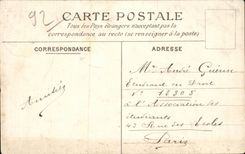 92
CARTE POSTALE
Tous les Pays étrangers n'acceptent pas la
correspondance au recto (se renseigner à la poste)
CORRESPONDANCE
ADRESSE
Mr André
Étudiant en Droit
N° 18305
à l'Association des
étudiants
43 Rue des Écoles
Paris
Amitiés